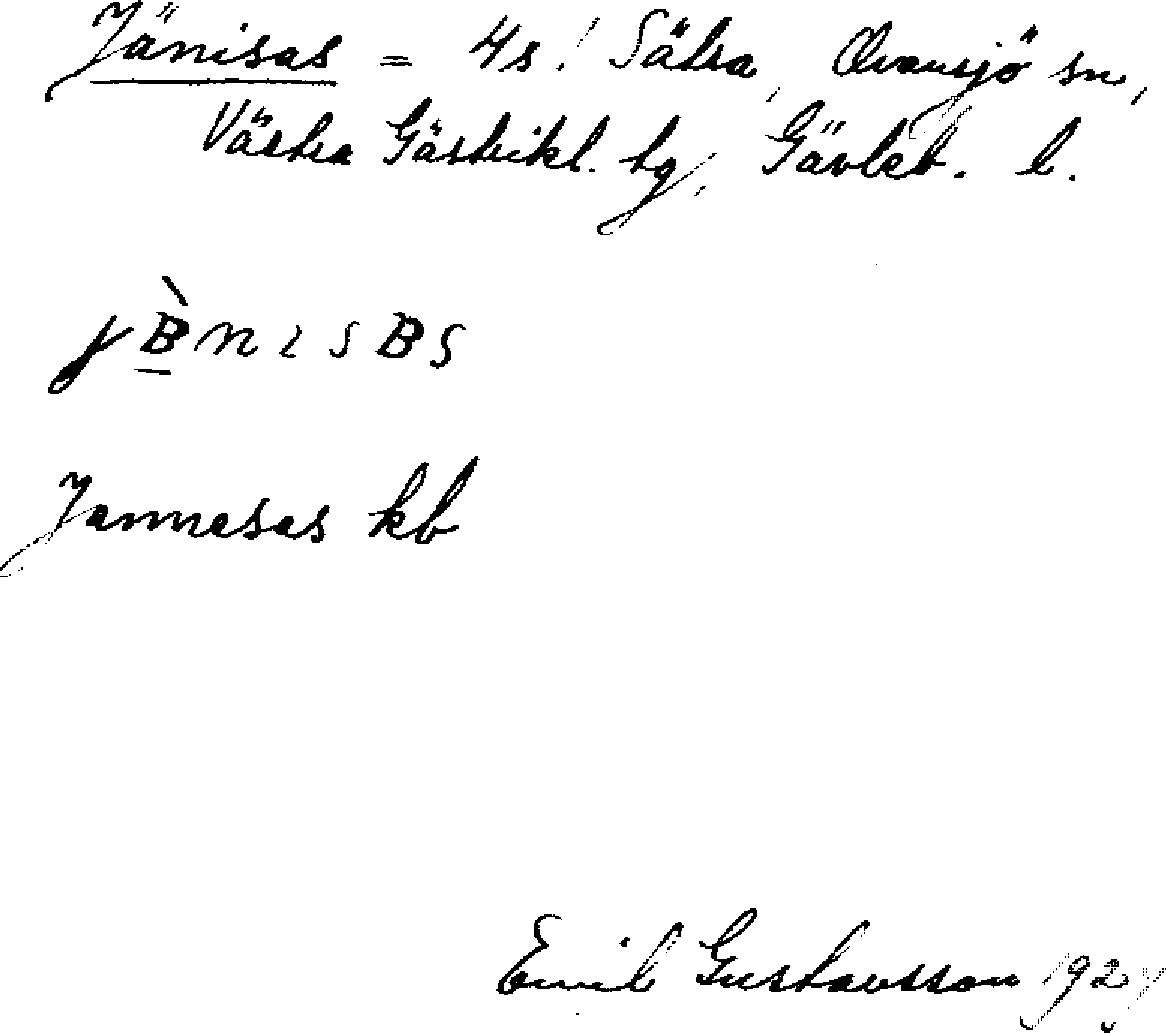 Jänisas = 4s! Sätra, Ovansjö sn,
Västra Gästrikl. tg, Gävleb. l.
jḆ̀nɩsBs
Jannesas kb
Emil Gustavsson